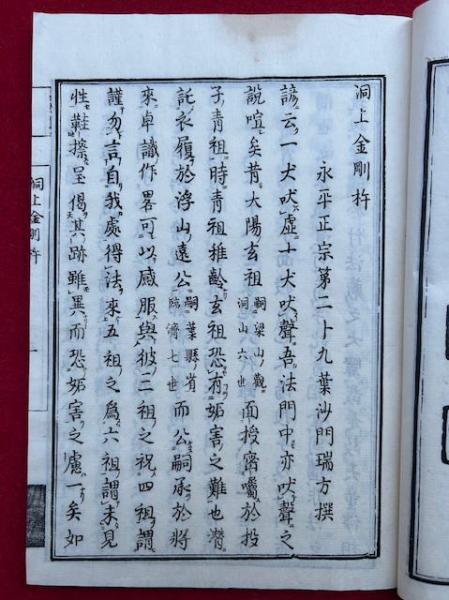 洞上金剛杵
永平正宗第二十九葉沙門瑞方撰
諺云一犬吠虛十犬吠聲吾法門中亦吠聲之
說喧矣昔大陽玄祖嗣梁山觀洞山六世面授密囑於投
子青祖時青祖推齡玄祖恐有妬害之難也潛
託衣履於浮山遠公嗣葉縣省臨濟七世而公嗣承於將
來卓識作畧可以感服與彼二祖之祝四祖謂
謹勿言自我處得法來五祖之爲六祖謂未見
性鞋擦呈偈其跡雖異而恐妬害之慮一矣如
洞上金剛杵
一